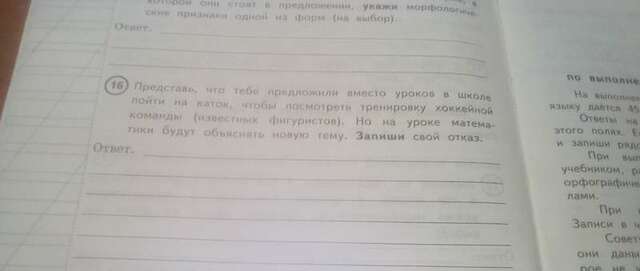 которой они стоят в предложении, укажи морфологиче-
ские признаки одной из форм (на выбор).
Ответ.
16 Представь, что тебе предложили вместо уроков в школе
пойти на каток, чтобы посмотреть тренировку хоккейной
команды (известных фигуристов). Но на уроке матема-
тики будут объяснять новую тему. Запиши свой отказ.
Ответ.
по выполне
На выполне
языку даётся 45
Ответы на
этого полях.
и запиши рядо
При вып
учебником, ра
орфографиче
лами.
При
Записи в ч
Совет
они дан
рое не